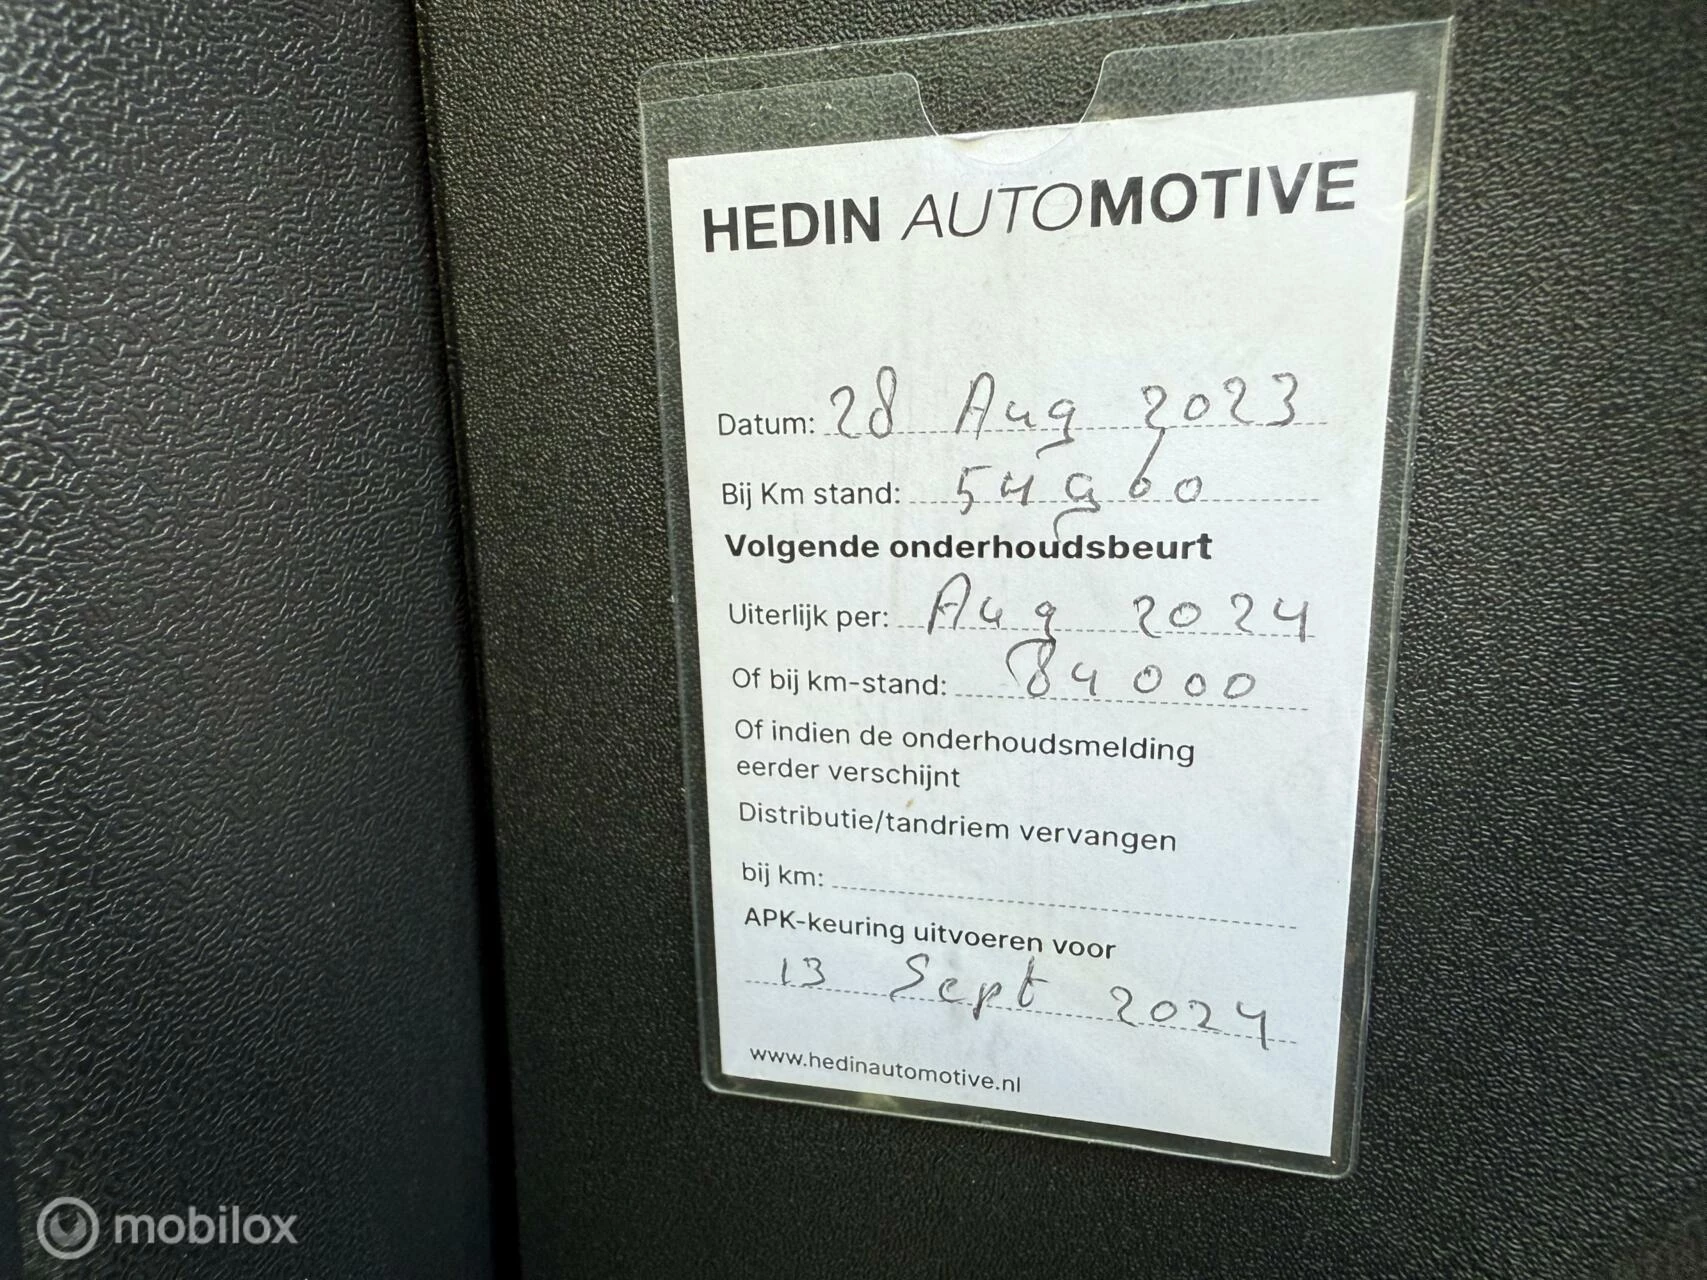 HEDIN AUTOMOTIVE
Datum: 28 Aug 2023
Bij Km stand: 54960
Volgende onderhoudsbeurt
Uiterlijk per: Aug 2024
Of bij km-stand: 84000
Of indien de onderhoudsmelding
eerder verschijnt
Distributie/tandriem vervangen
bij km:
APK-keuring uitvoeren voor
13 Sept 2024
www.hedinautomotive.nl
mobilox